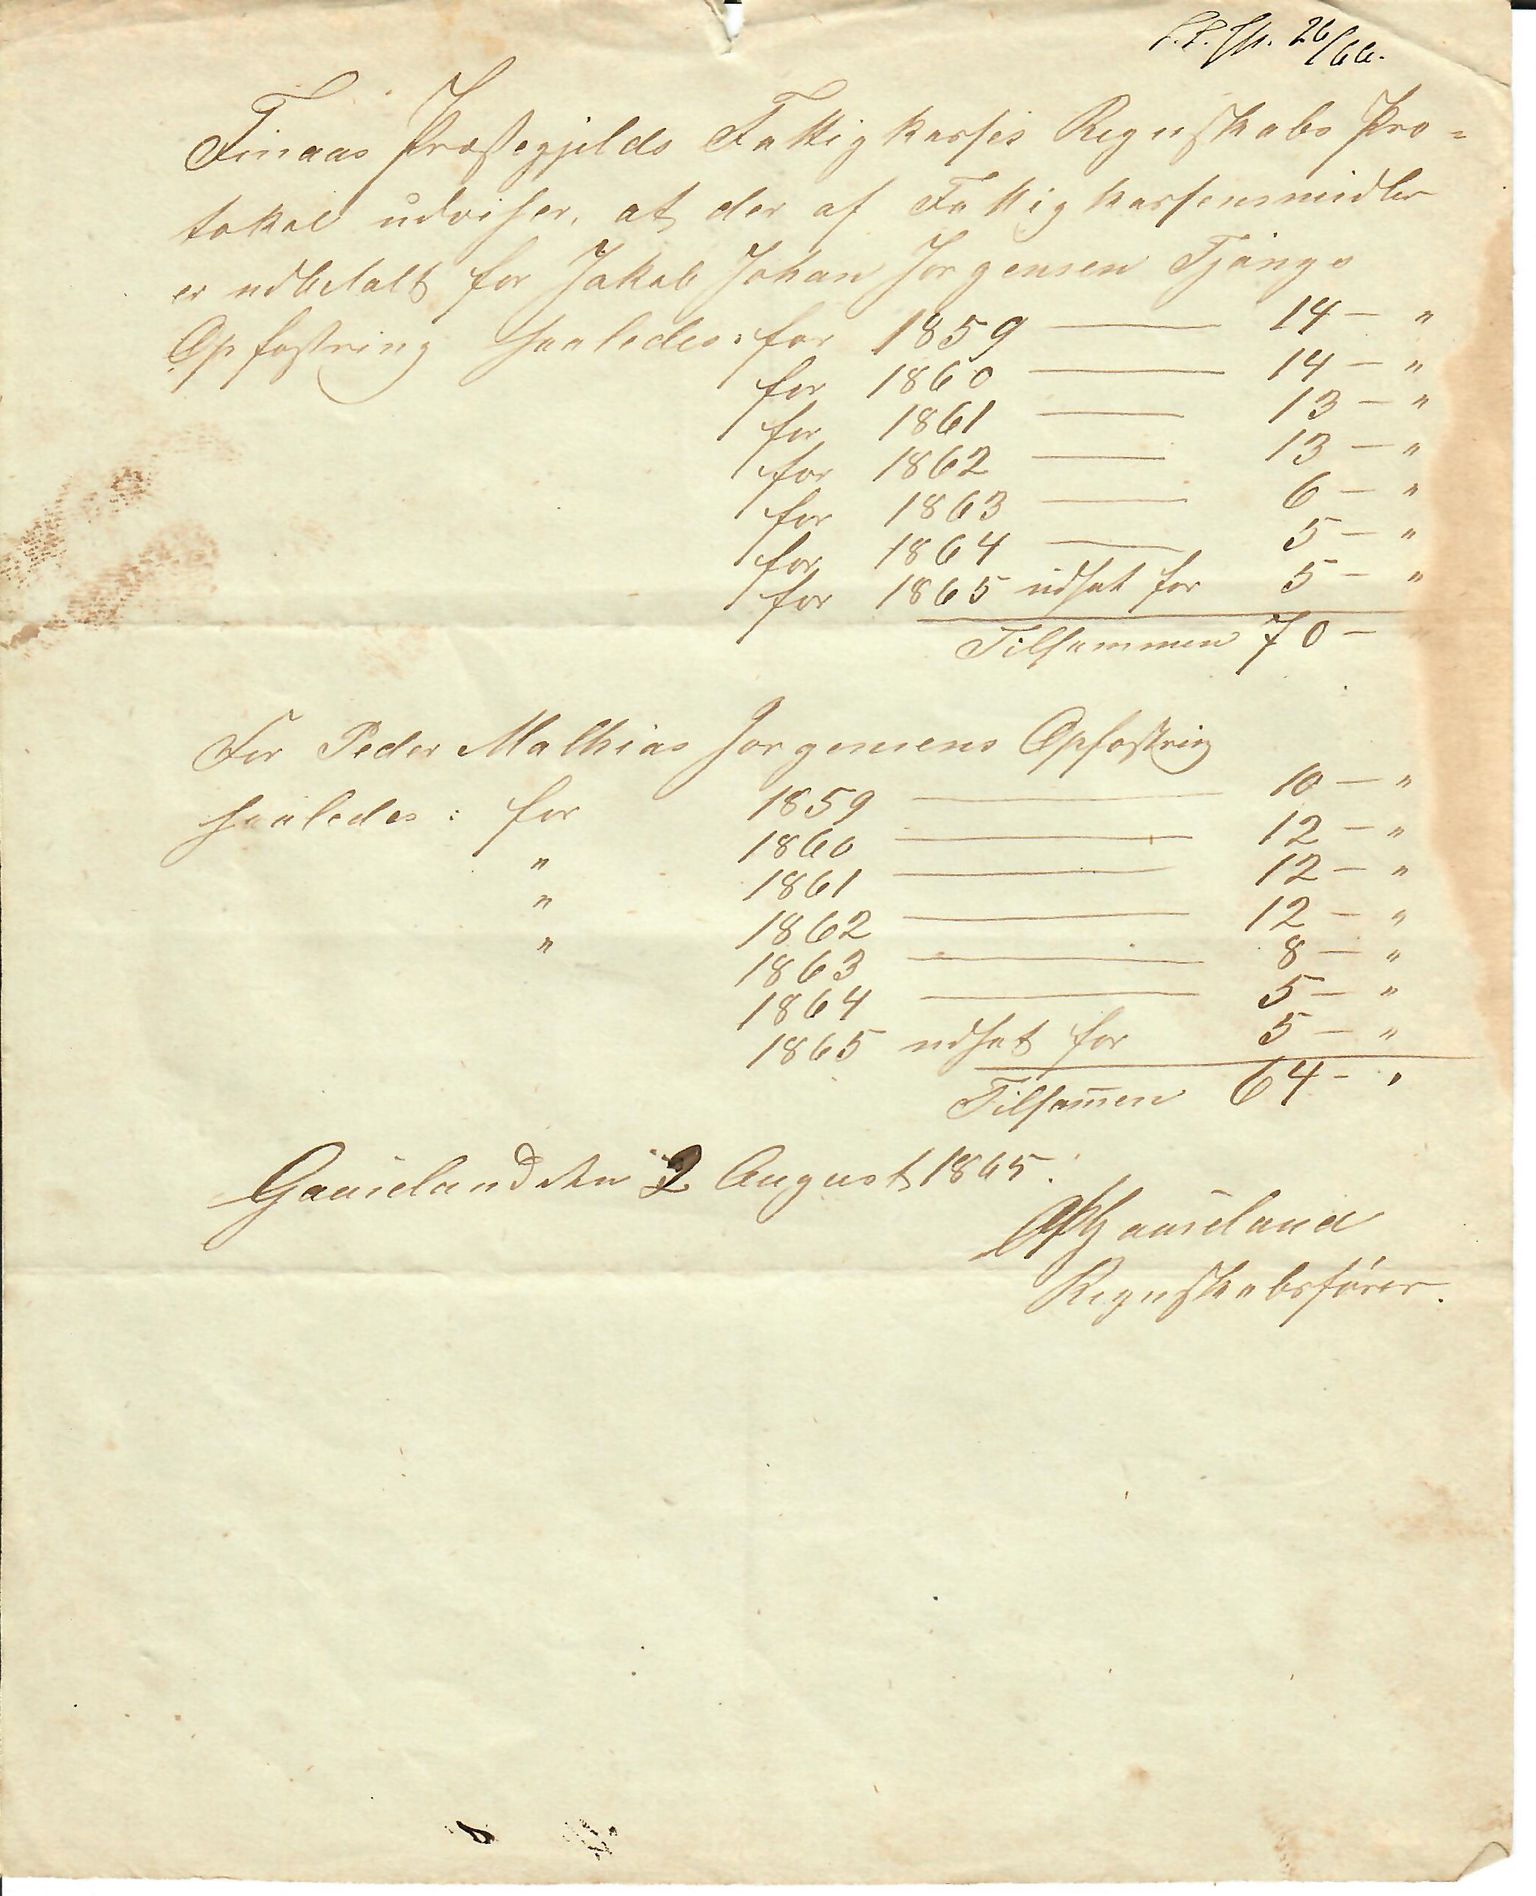 26/66.
Finaas Præstegjelds Fattigkasses Regnskabs Pro=
tokol udviser, at der af Fattigkassens midler
er udbetalt for Jakob Johan Jørgensen Tjangs
Opfostring saaledes: for 1859 — 14 — "
for 1860 — 14 — "
for 1861 — 13 — "
for 1862 — 13 — "
for 1863 — 6 — "
for 1864 — 5 — "
for 1865 udsat for 5 — "
Tilsammen 70 —
For Peder Mathias Jorgensens Opfostring
saaledes: for 1859 — 10 — "
" 1860 — 12 — "
" 1861 — 12 — "
" 1862 — 12 — "
1863 — 8 — "
1864 — 5 — "
1865 udsat for 5 — "
Tilsam̅en 64 — "
Gaaseland den 2 August 1865.
Gaaseland
Regnskabsfører.